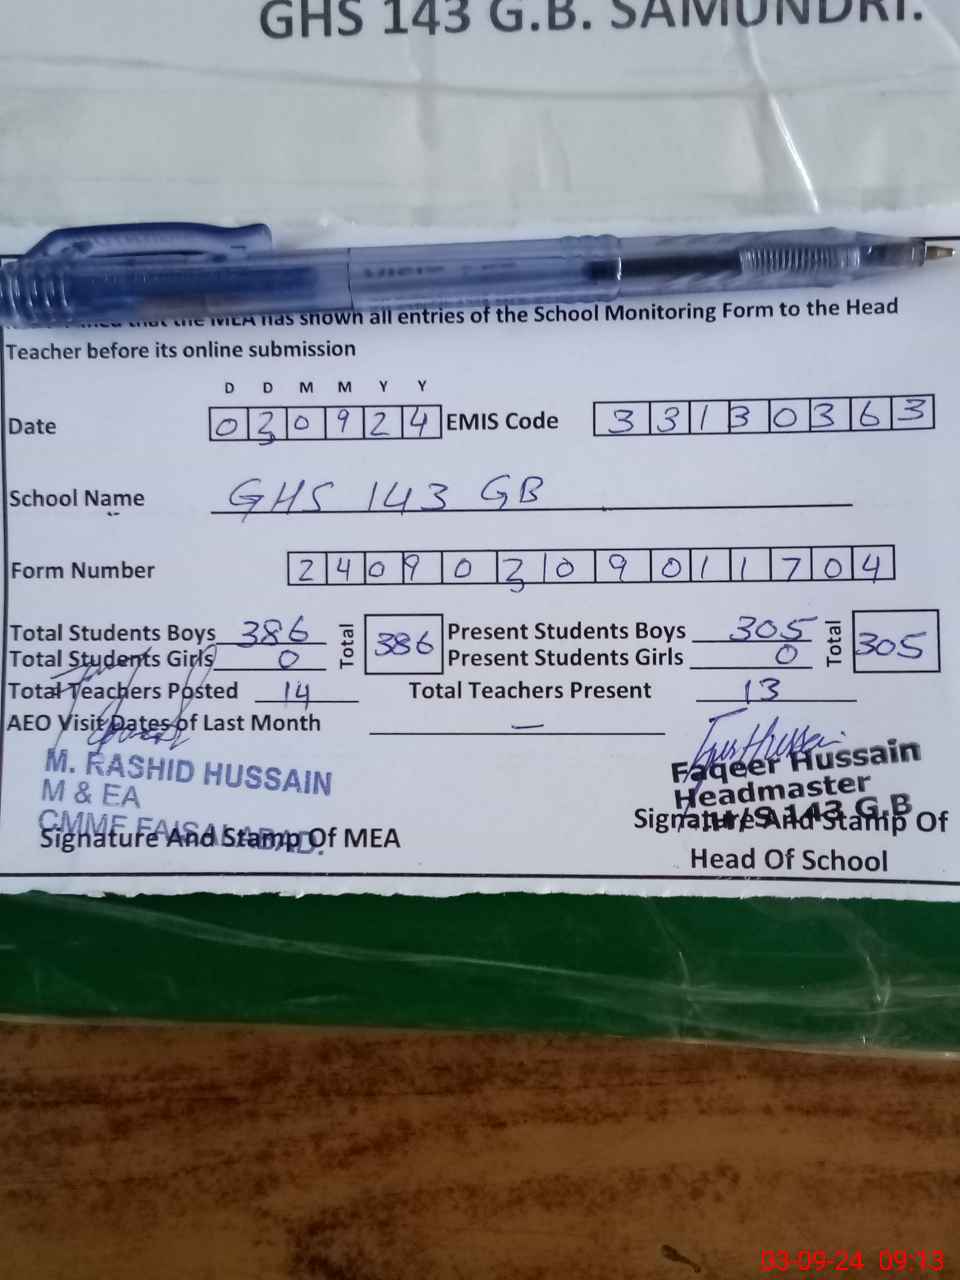 GHS 143 G.B. SAMUNDRI.
that the MEA has shown all entries of the School Monitoring Form to the Head
Teacher before its online submission
D D M M Y Y
Date 0 3 0 9 2 4 EMIS Code 3 3 1 3 0 3 6 3
School Name GHS 143 GB
Form Number 2 4 0 9 0 3 0 9 0 1 1 7 0 4
Total Students Boys 386 Total 386 Present Students Boys 305 Total 305
Total Students Girls 0 Present Students Girls 0
Total Teachers Posted 14 Total Teachers Present 13
AEO Visit Dates of Last Month —
M. RASHID HUSSAIN
M & EA
CMMF FAISALABAD.
Signature And Stamp Of MEA
Faqeer Hussain
Headmaster
143 G.B
Signature And Stamp Of
Head Of School
03-09-24 09:13